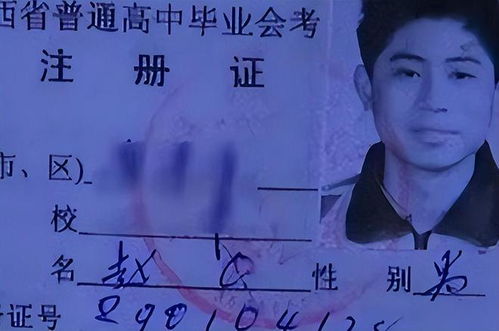 西省普通高中毕业会考
注册证
市、区)
校
名 赵 性别 男
证号 2901041